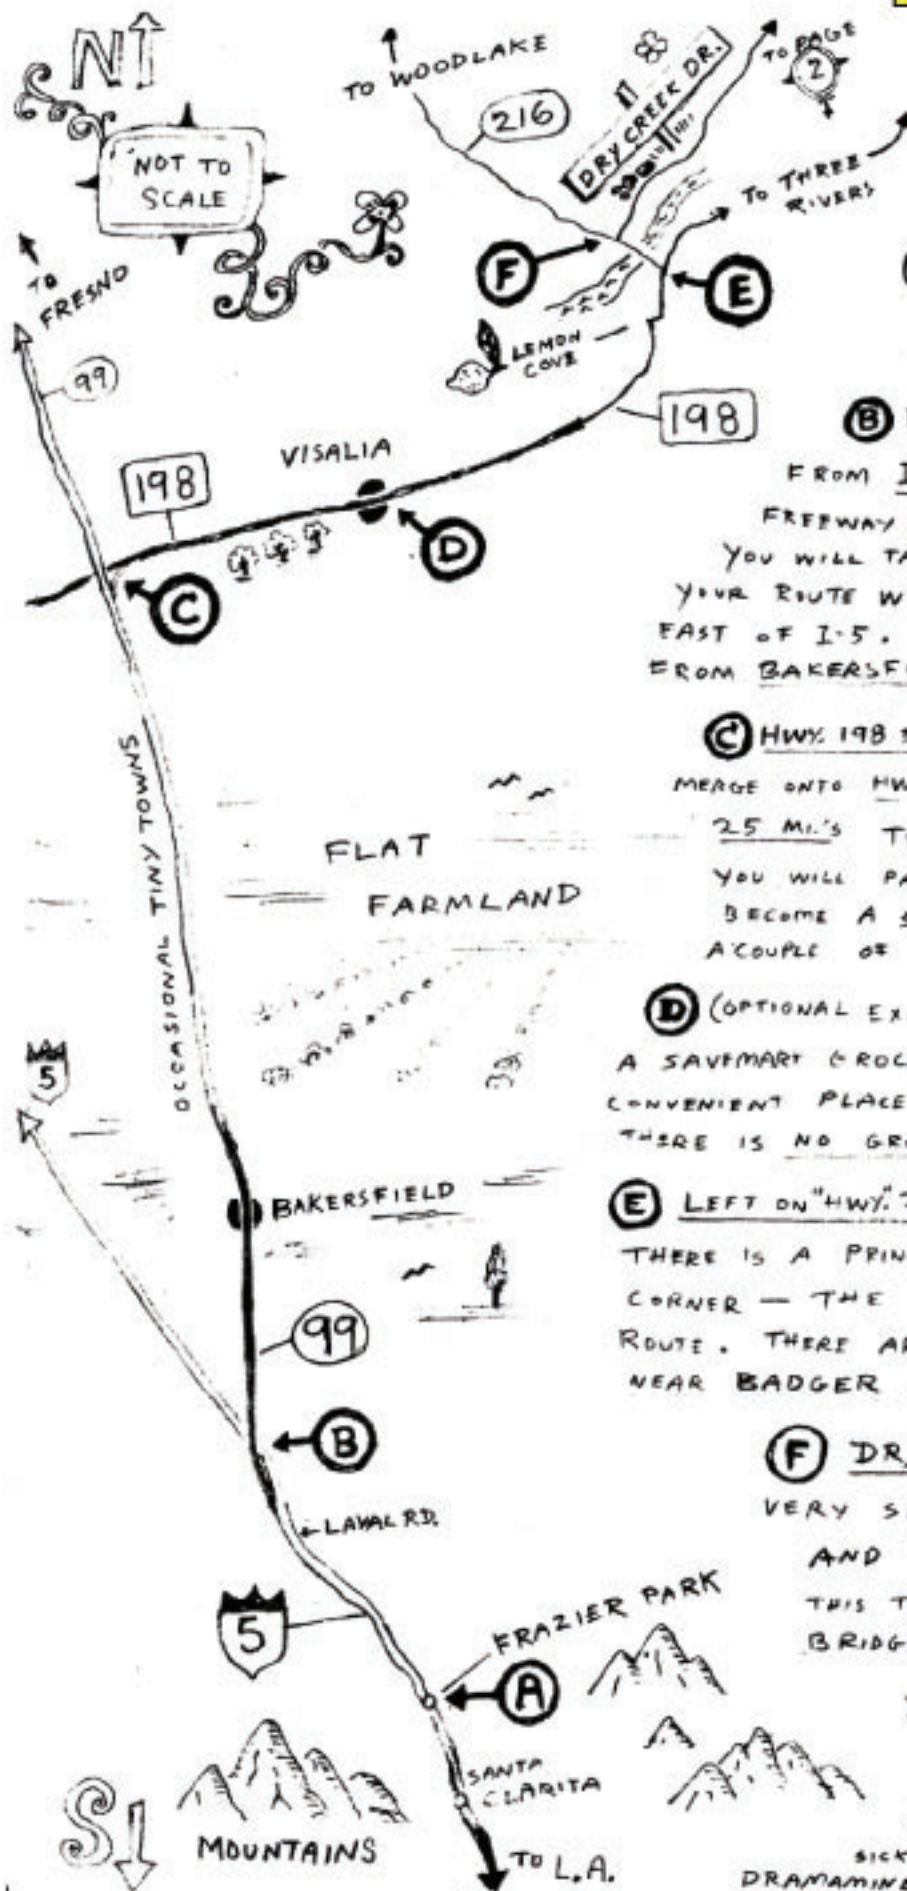 N
NOT TO
SCALE
TO WOODLAKE
216
DRY CREEK DR.
TO PAGE
2
TO THREE
RIVERS
TO
FRESNO
99
F
E
LEMON
COVE
198
VISALIA
198
D
C
OCCASIONAL TINY TOWNS
FLAT
FARMLAND
5
BAKERSFIELD
99
B
LAVAL RD.
5
FRAZIER PARK
A
SANTA
CLARITA
S
MOUNTAINS
TO L.A.
B
FROM
FREEWAY
YOU WILL
YOUR ROUTE
EAST OF I-5.
FROM
C HWY. 198
MERGE ONTO
25 MI.'s
YOU WILL
BECOME A
A COUPLE OF
D (OPTIONAL
A SAVEMART
CONVENIENT PLACE
THERE IS NO
E LEFT ON "HWY."
THERE IS A
CORNER — THE
ROUTE. THERE
NEAR BADGER
F
VERY
AND
THIS
DRAMAMINE